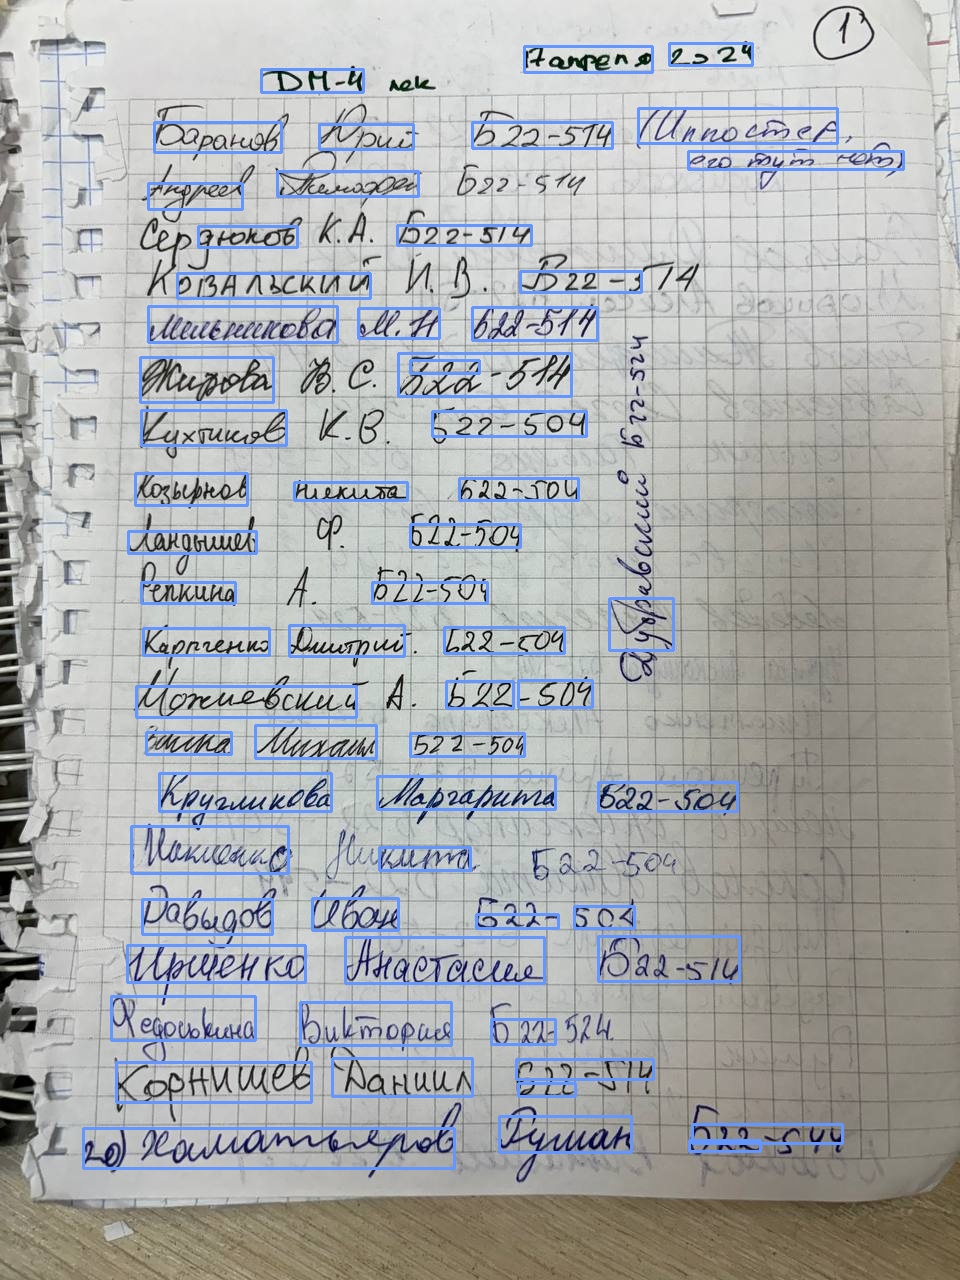 1
7 апреля 2024
DM-4 лек
Баранов Юрий Б22-514 (Импостер,
его тут нет)
Андреев Тимофей Б22-514
Сердюков К.А. Б22-514
Ковальский И.В. Б22-514
Мельникова М.Н Б22-514
Жирова В.С. Б22-514
Кухтиков К.В. Б22-504
Козырнов Никита Б22-504
Ландышев Ф. Б22-504
Репкина А. Б22-504
Карпченко Дмитрий. Б22-504
Можиевский А. Б22-504
Михаил Б22-504
Кругликова Маргарита Б22-504
Никита Б22-504
Давыдов Иван Б22-504
Ирщенко Анастасия Б22-514
Федоськина Виктория Б22-524
Корнишев Даниил Б22-514
20) Хаматьяров Руслан Б22-544
Дубравский Б22-524